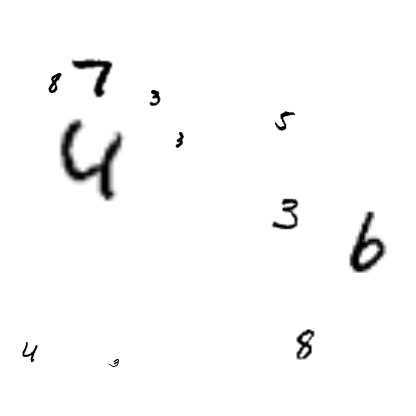 8 7 3
4 3 5
3 6
4 3 8